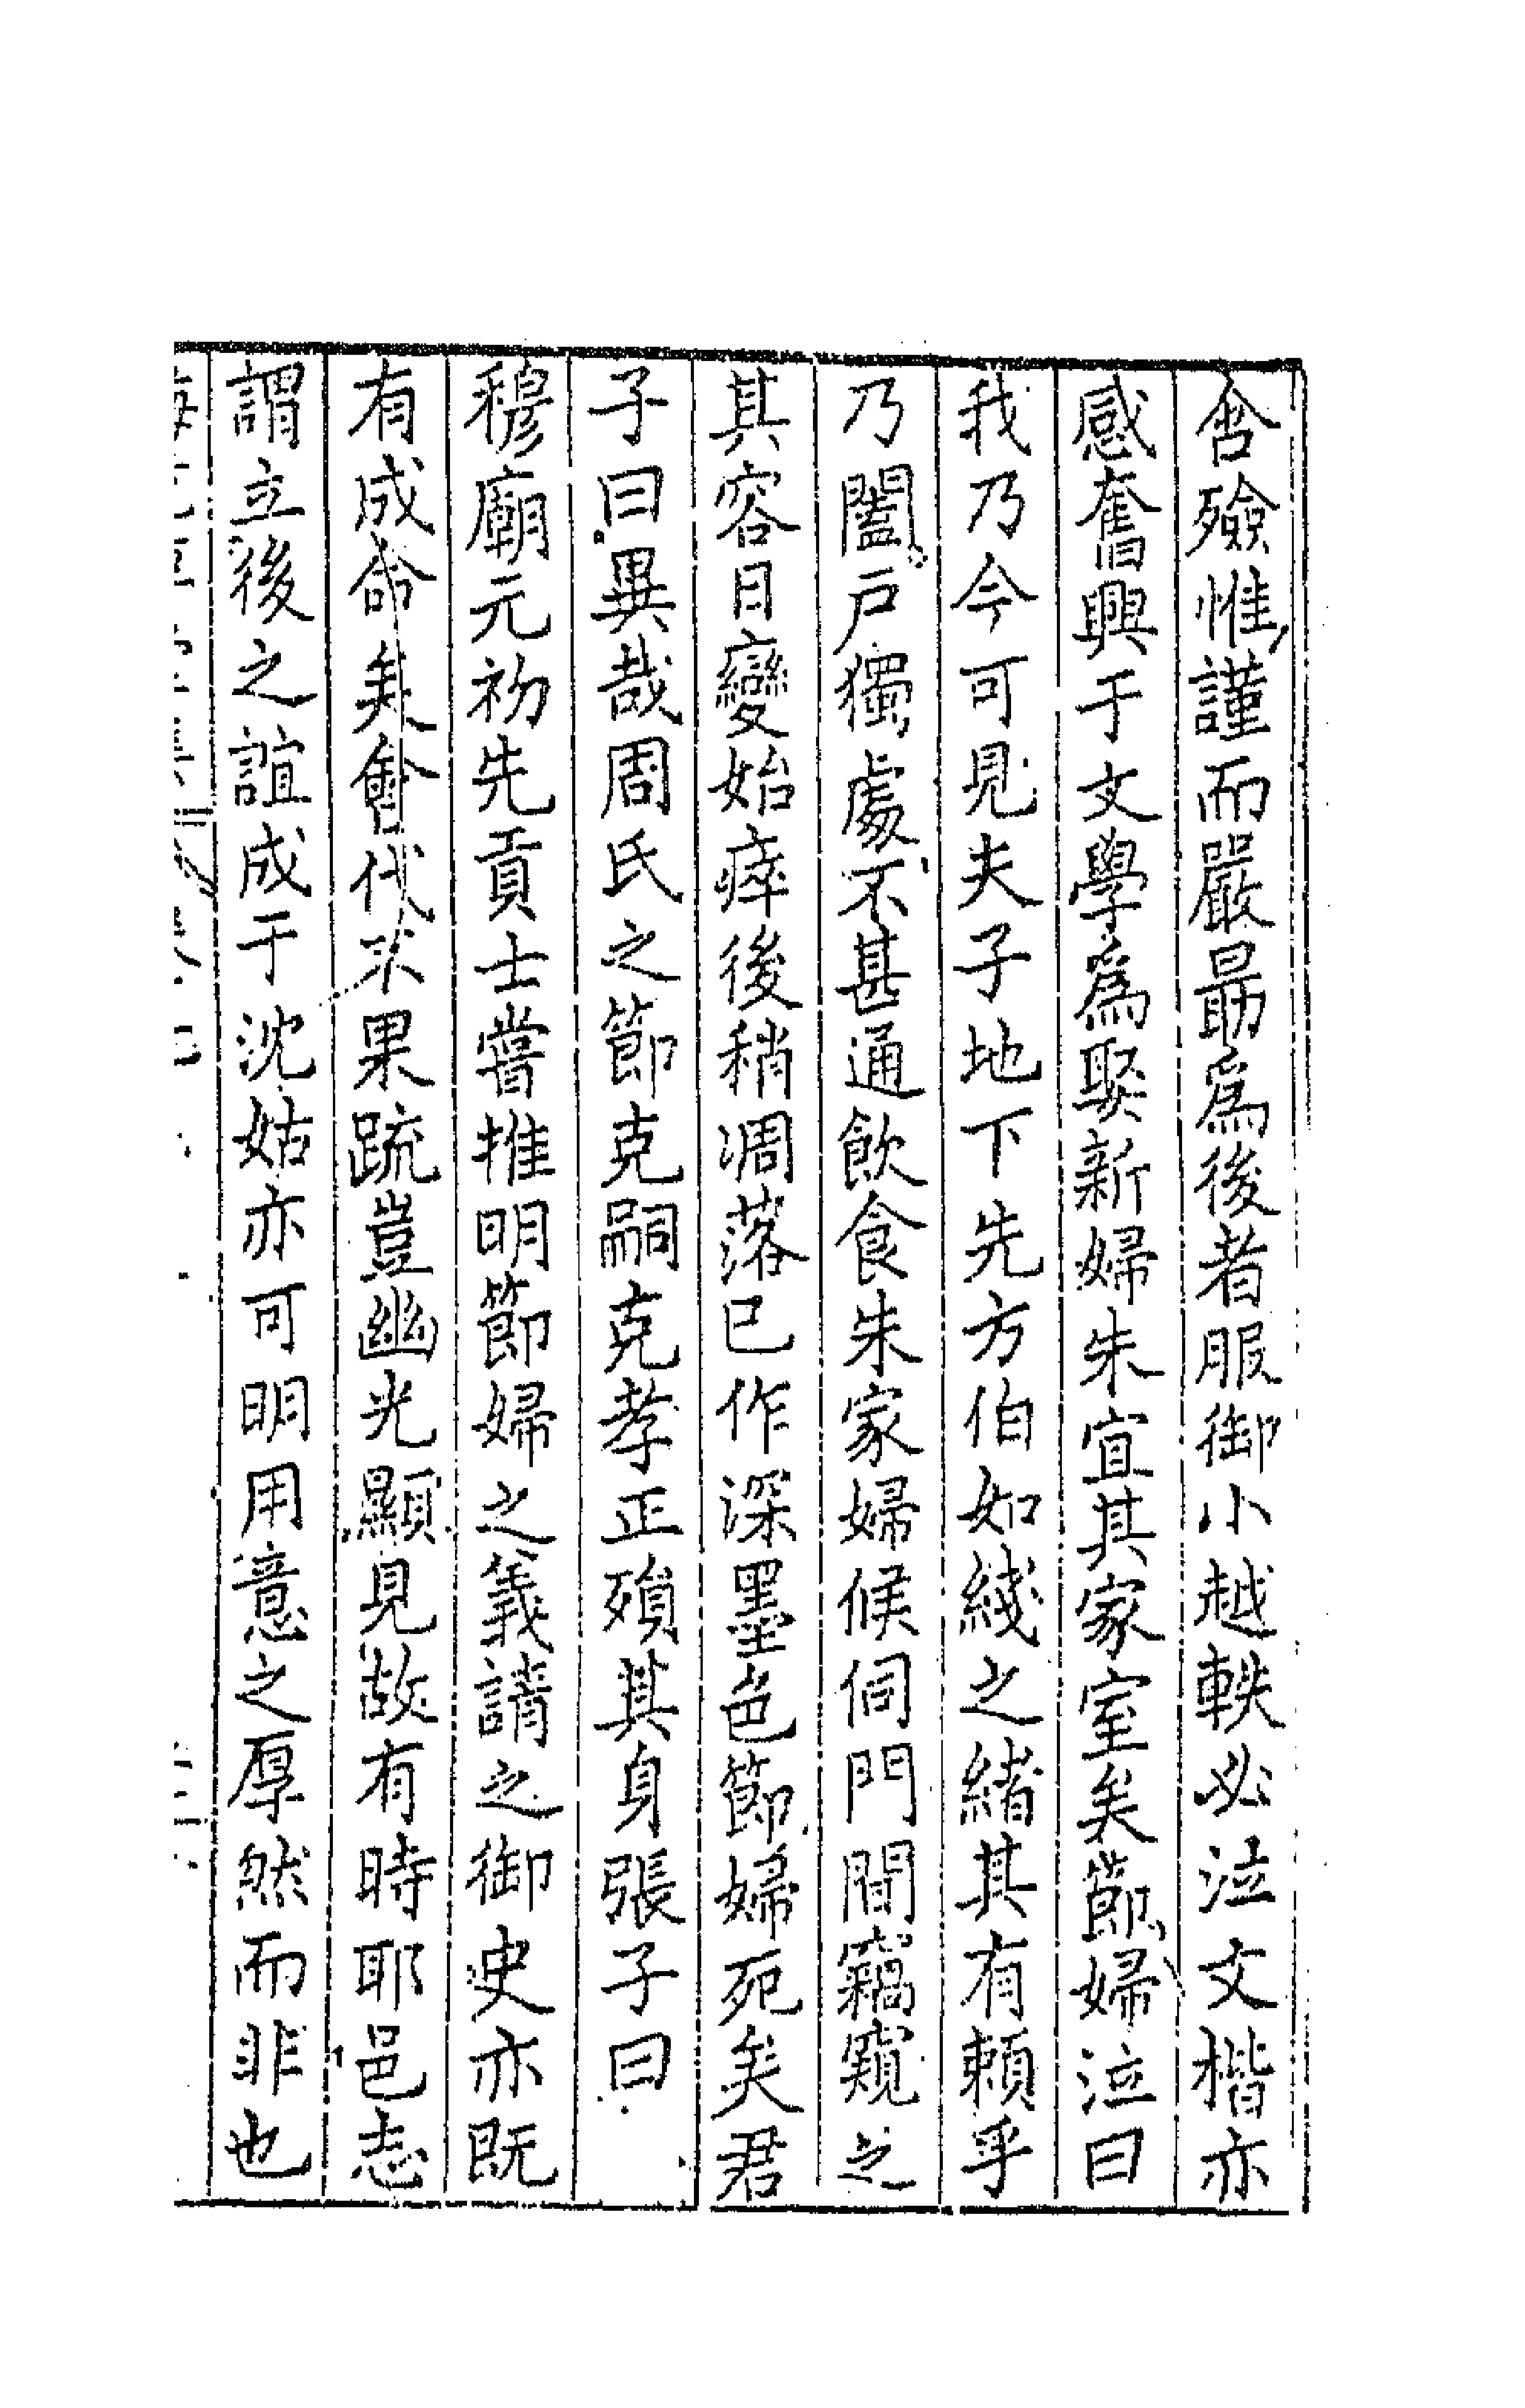 含殮惟謹而嚴最爲後者服御小越軼必泣文楷亦
感奮興于文學爲娶新婦朱宜其家室矣節婦泣曰
我乃今可見夫子地下先方伯如綫之緒其有賴乎
乃闔戸獨處不甚通飲食朱家婦候伺門間竊窺之
其容日變始瘁後稍凋落已作深墨色節婦死矣君
子曰異哉周氏之節克嗣克孝正殞其身張子曰
穆廟元初先貢士嘗推明節婦之義請之御史亦既
有成命矣會代不果䟽豈幽光顯見故有時耶邑志
謂立後之誼成于沈姑亦可明用意之厚然而非也